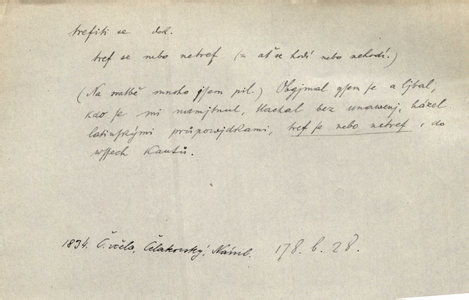 trefiti se dok.
tref se nebo netref (= ať se hodí nebo nehodí.)
(Na svatbě mnoho jsem pil.) Obgjmal gsem je a ljbal,
kdo se mi namjtnul, tlachal bez unawenj, házel
latinskými průpowjdkami, tref se nebo netref, do
wssech kautů.
1834. Č. včela, Čelakovský, Náml. 178. b. 28.